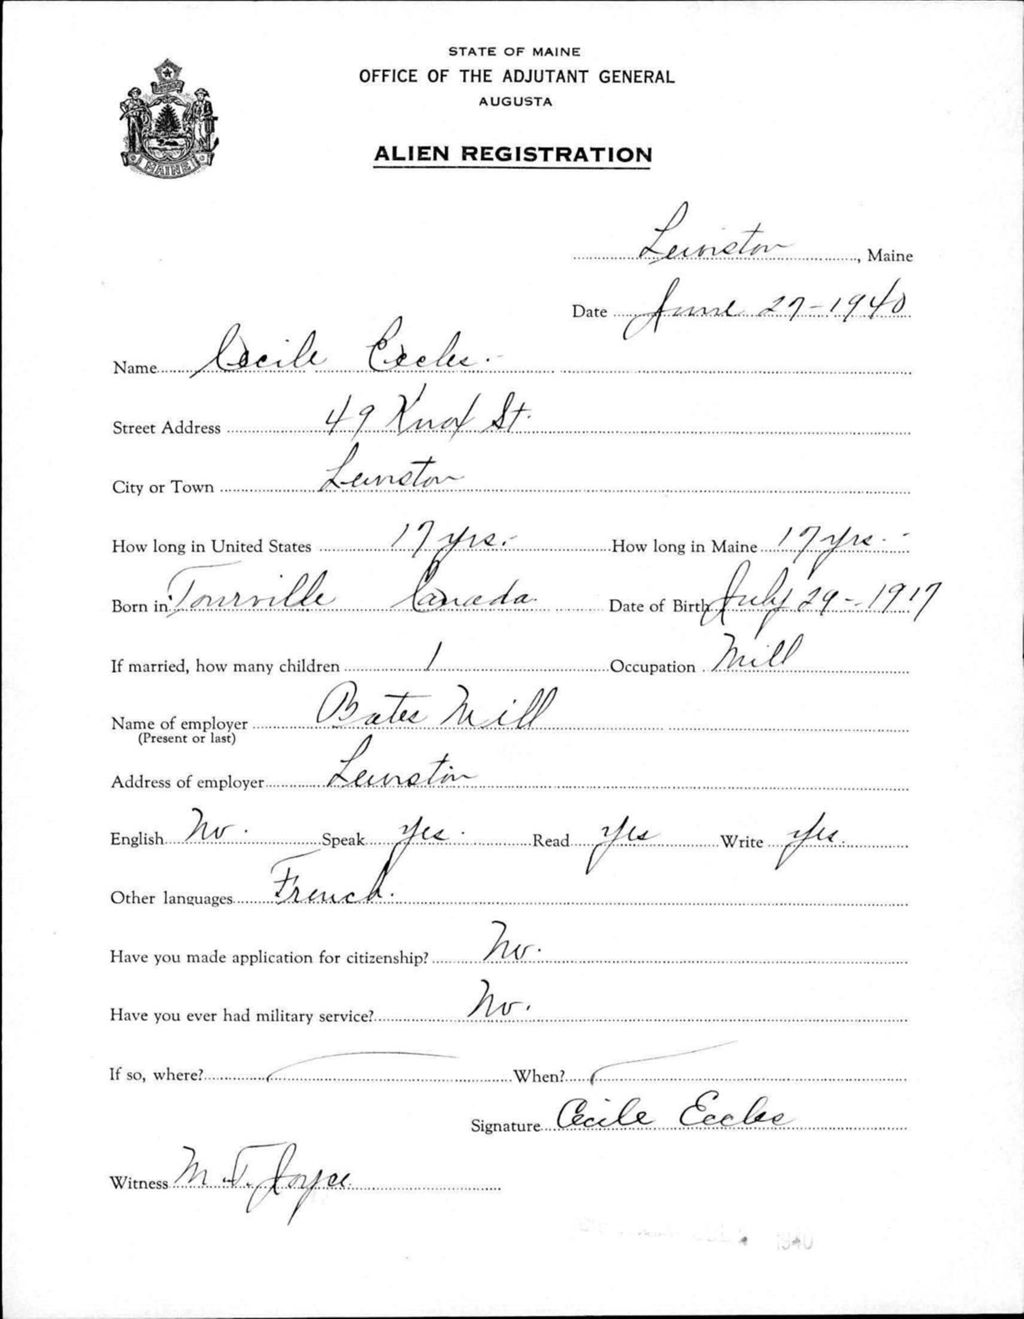 STATE OF MAINE
OFFICE OF THE ADJUTANT GENERAL
AUGUSTA
ALIEN REGISTRATION
MAINE
Lewiston, Maine
Date June 27-1940
Name Cecile Eccles.
Street Address 49 Knox St.
City or Town Lewiston
How long in United States 17 yrs. How long in Maine 17 yrs.
Born in Tourville Canada Date of Birth July 29-1917
If married, how many children 1 Occupation Mill
Name of employer Bates Mill
(Present or last)
Address of employer Lewiston
English No. Speak Yes. Read Yes Write Yes.
Other languages French.
Have you made application for citizenship? No.
Have you ever had military service? No.
If so, where? When?
Signature Cecile Eccles
Witness M. T. Joyce
1940